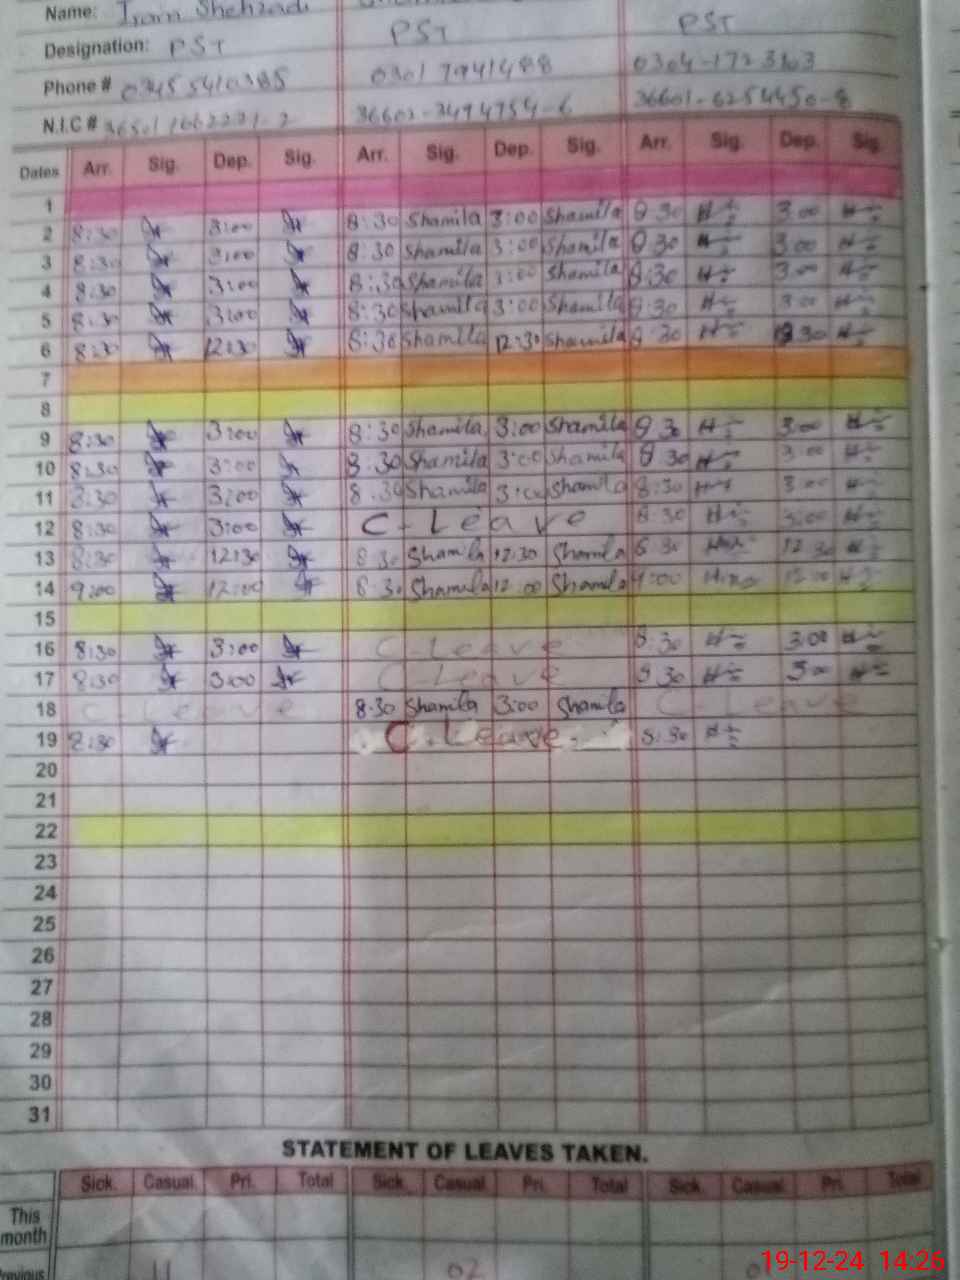 Name: Iram Shehzadi
Designation: PST PST PST
Phone # 0345 5410385 0301 7941488
N.I.C # 36602-3494754-6 36601-6254450-8
Dates Arr. Sig. Dep. Sig. Arr. Sig. Dep. Sig. Arr. Sig. Dep. Sig.
1
2 8:30 3:00 8:30 Shamila 3:00 Shamila 8 30 3:00
3 8:30 3:00 8:30 Shamila 3:00 Shamila 8 30 3:00
4 8:30 3:00 8:30 Shamila 3:00 Shamila 8:30 3:00
5 8:30 3:00 8:30 Shamila 3:00 Shamila 8 30 3:00
6 8:30 12:30 8:30 Shamila 12:30 Shamila 8 30 12 30
7
8
9 8:30 3:00 8:30 Shamila 3:00 Shamila 8 30 3:00
10 8:30 3:00 8:30 Shamila 3:00 Shamila 8 30 3:00
11 8:30 3:00 8:30 Shamila 3:00 Shamila 8:30 3:00
12 8:30 3:00 C-Leave 8:30 3:00
13 8:30 12:30 8:30 Shamila 12:30 Shamila 8 30 12 30
14 9:00 12:00 8:30 Shamila 12:00 Shamila 9:00 12:00
15
16 8:30 3:00 C-Leave 8:30 3:00
17 8:30 3:00 C-Leave 8 30 3:00
18 C-Leave 8:30 Shamila 3:00 Shamila C-Leave
19 8:30 C-Leave 8:30
20
21
22
23
24
25
26
27
28
29
30
31
STATEMENT OF LEAVES TAKEN.
Sick. Casual Pri. Total Sick. Casual Pri. Total Sick Casual Pri. Total
This month
Previous 11 02
19-12-24 14:26